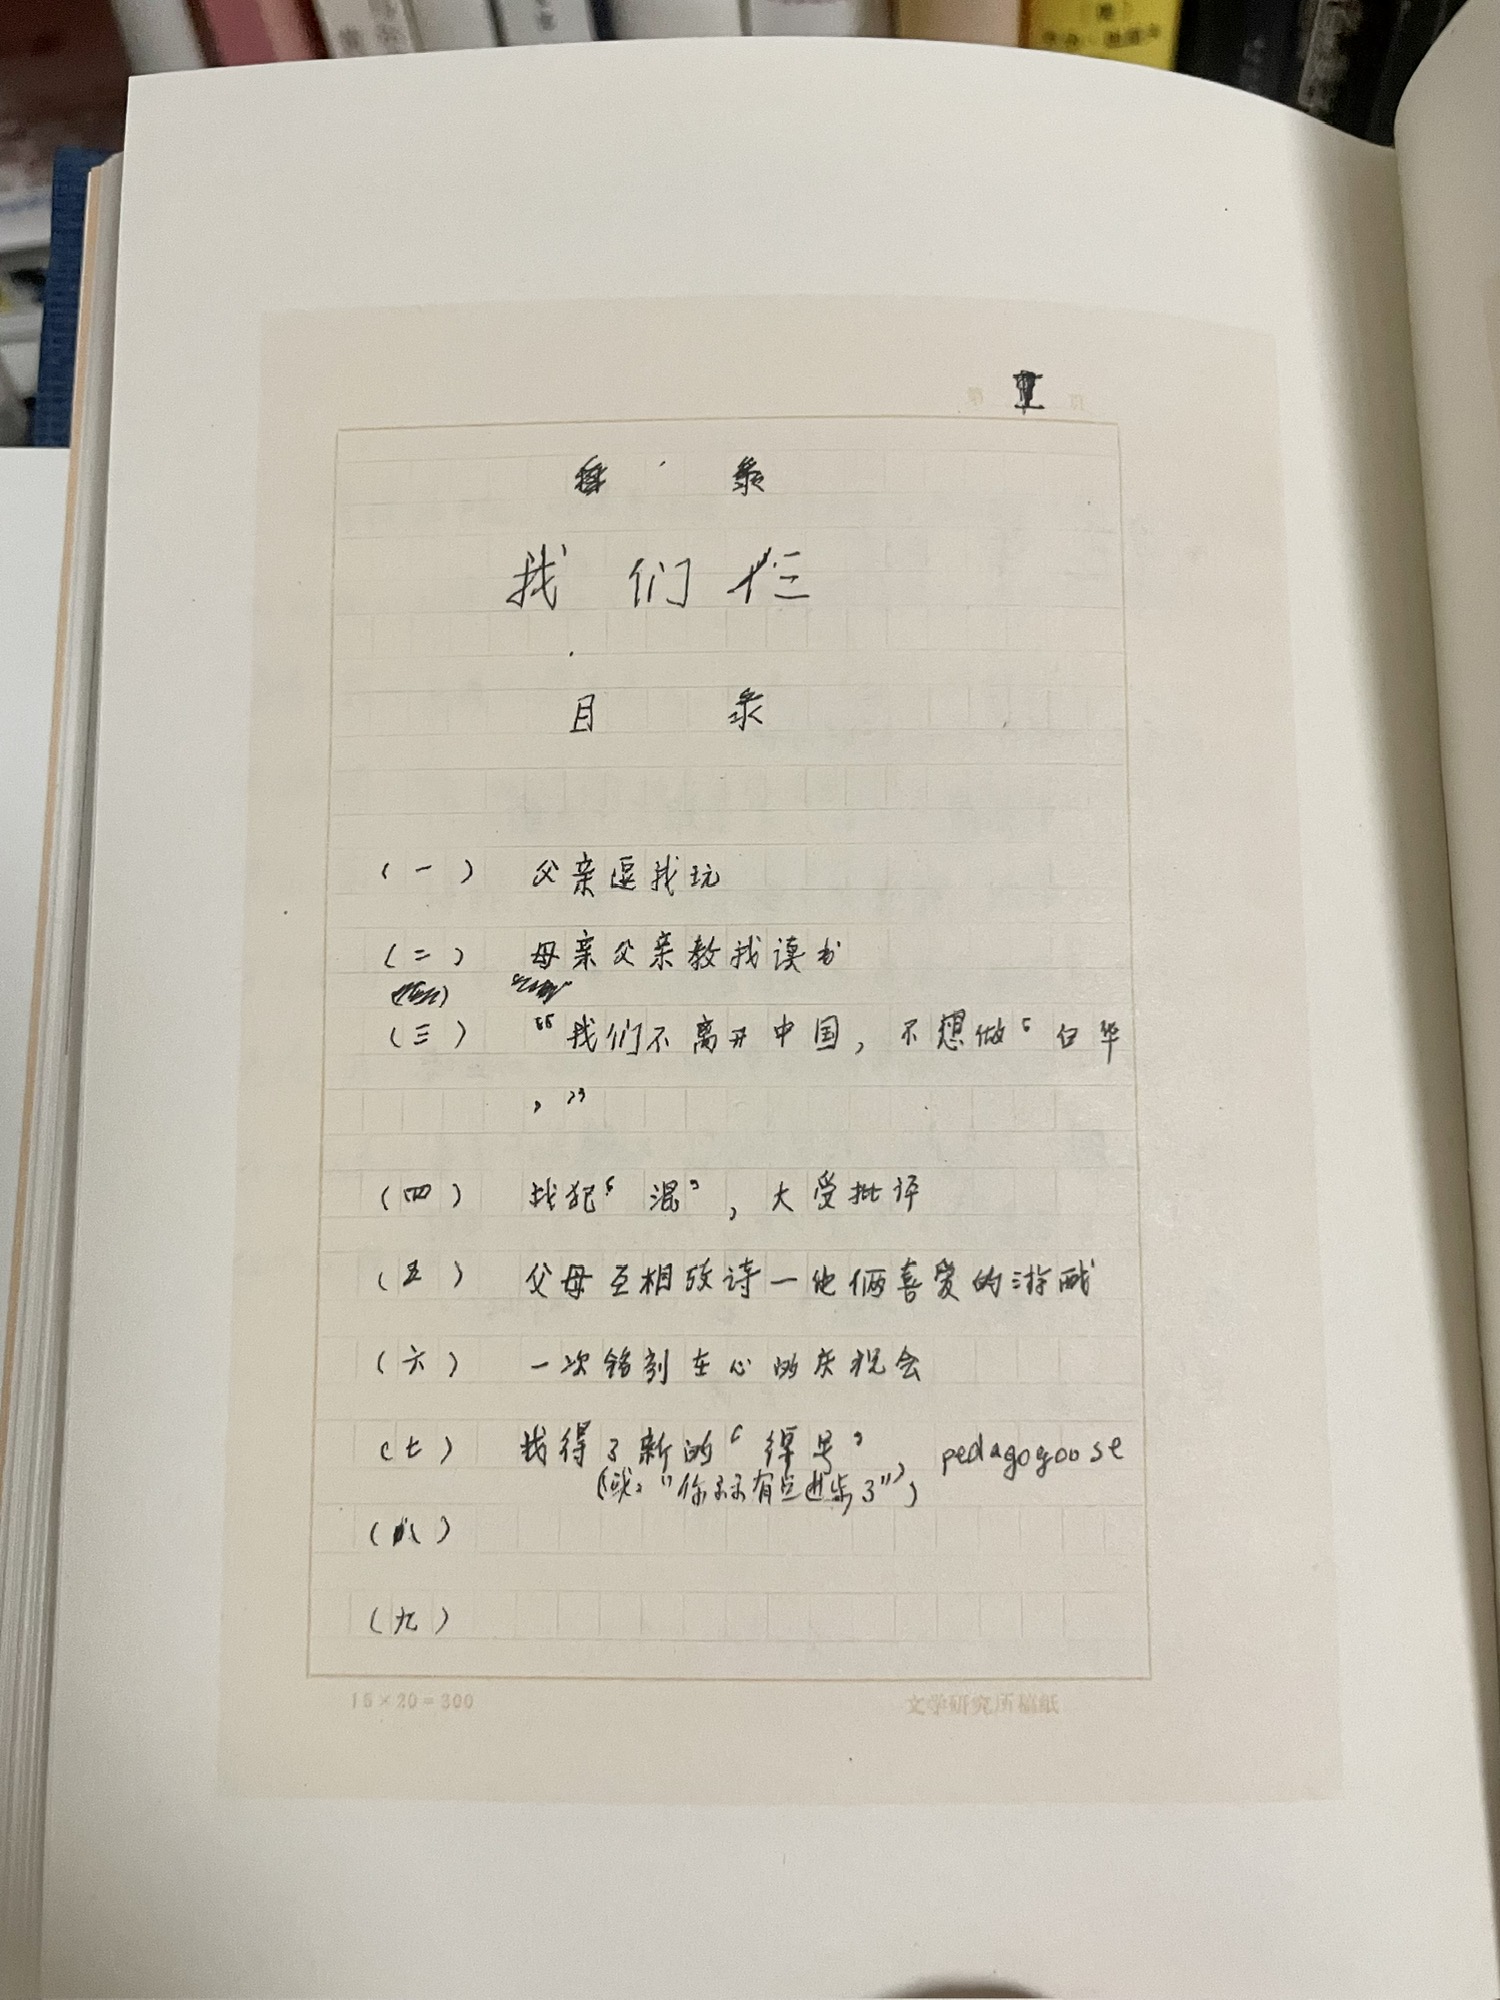 录
我们仨
目 录
(一) 父亲逗我玩
(二) 母亲父亲教我读书
(三) “我们不离开中国,不想做‘白华
’”
(四) 我犯‘混’,大受批评
(五) 父母互相改诗—他俩喜爱的游戏
(六) 一次铭刻在心的庆祝会
(七) 我得了新的‘绰号’, pedagogoose
(或:“你 有点进步了”)
(八)
(九)
15×20=300 文学研究所稿纸